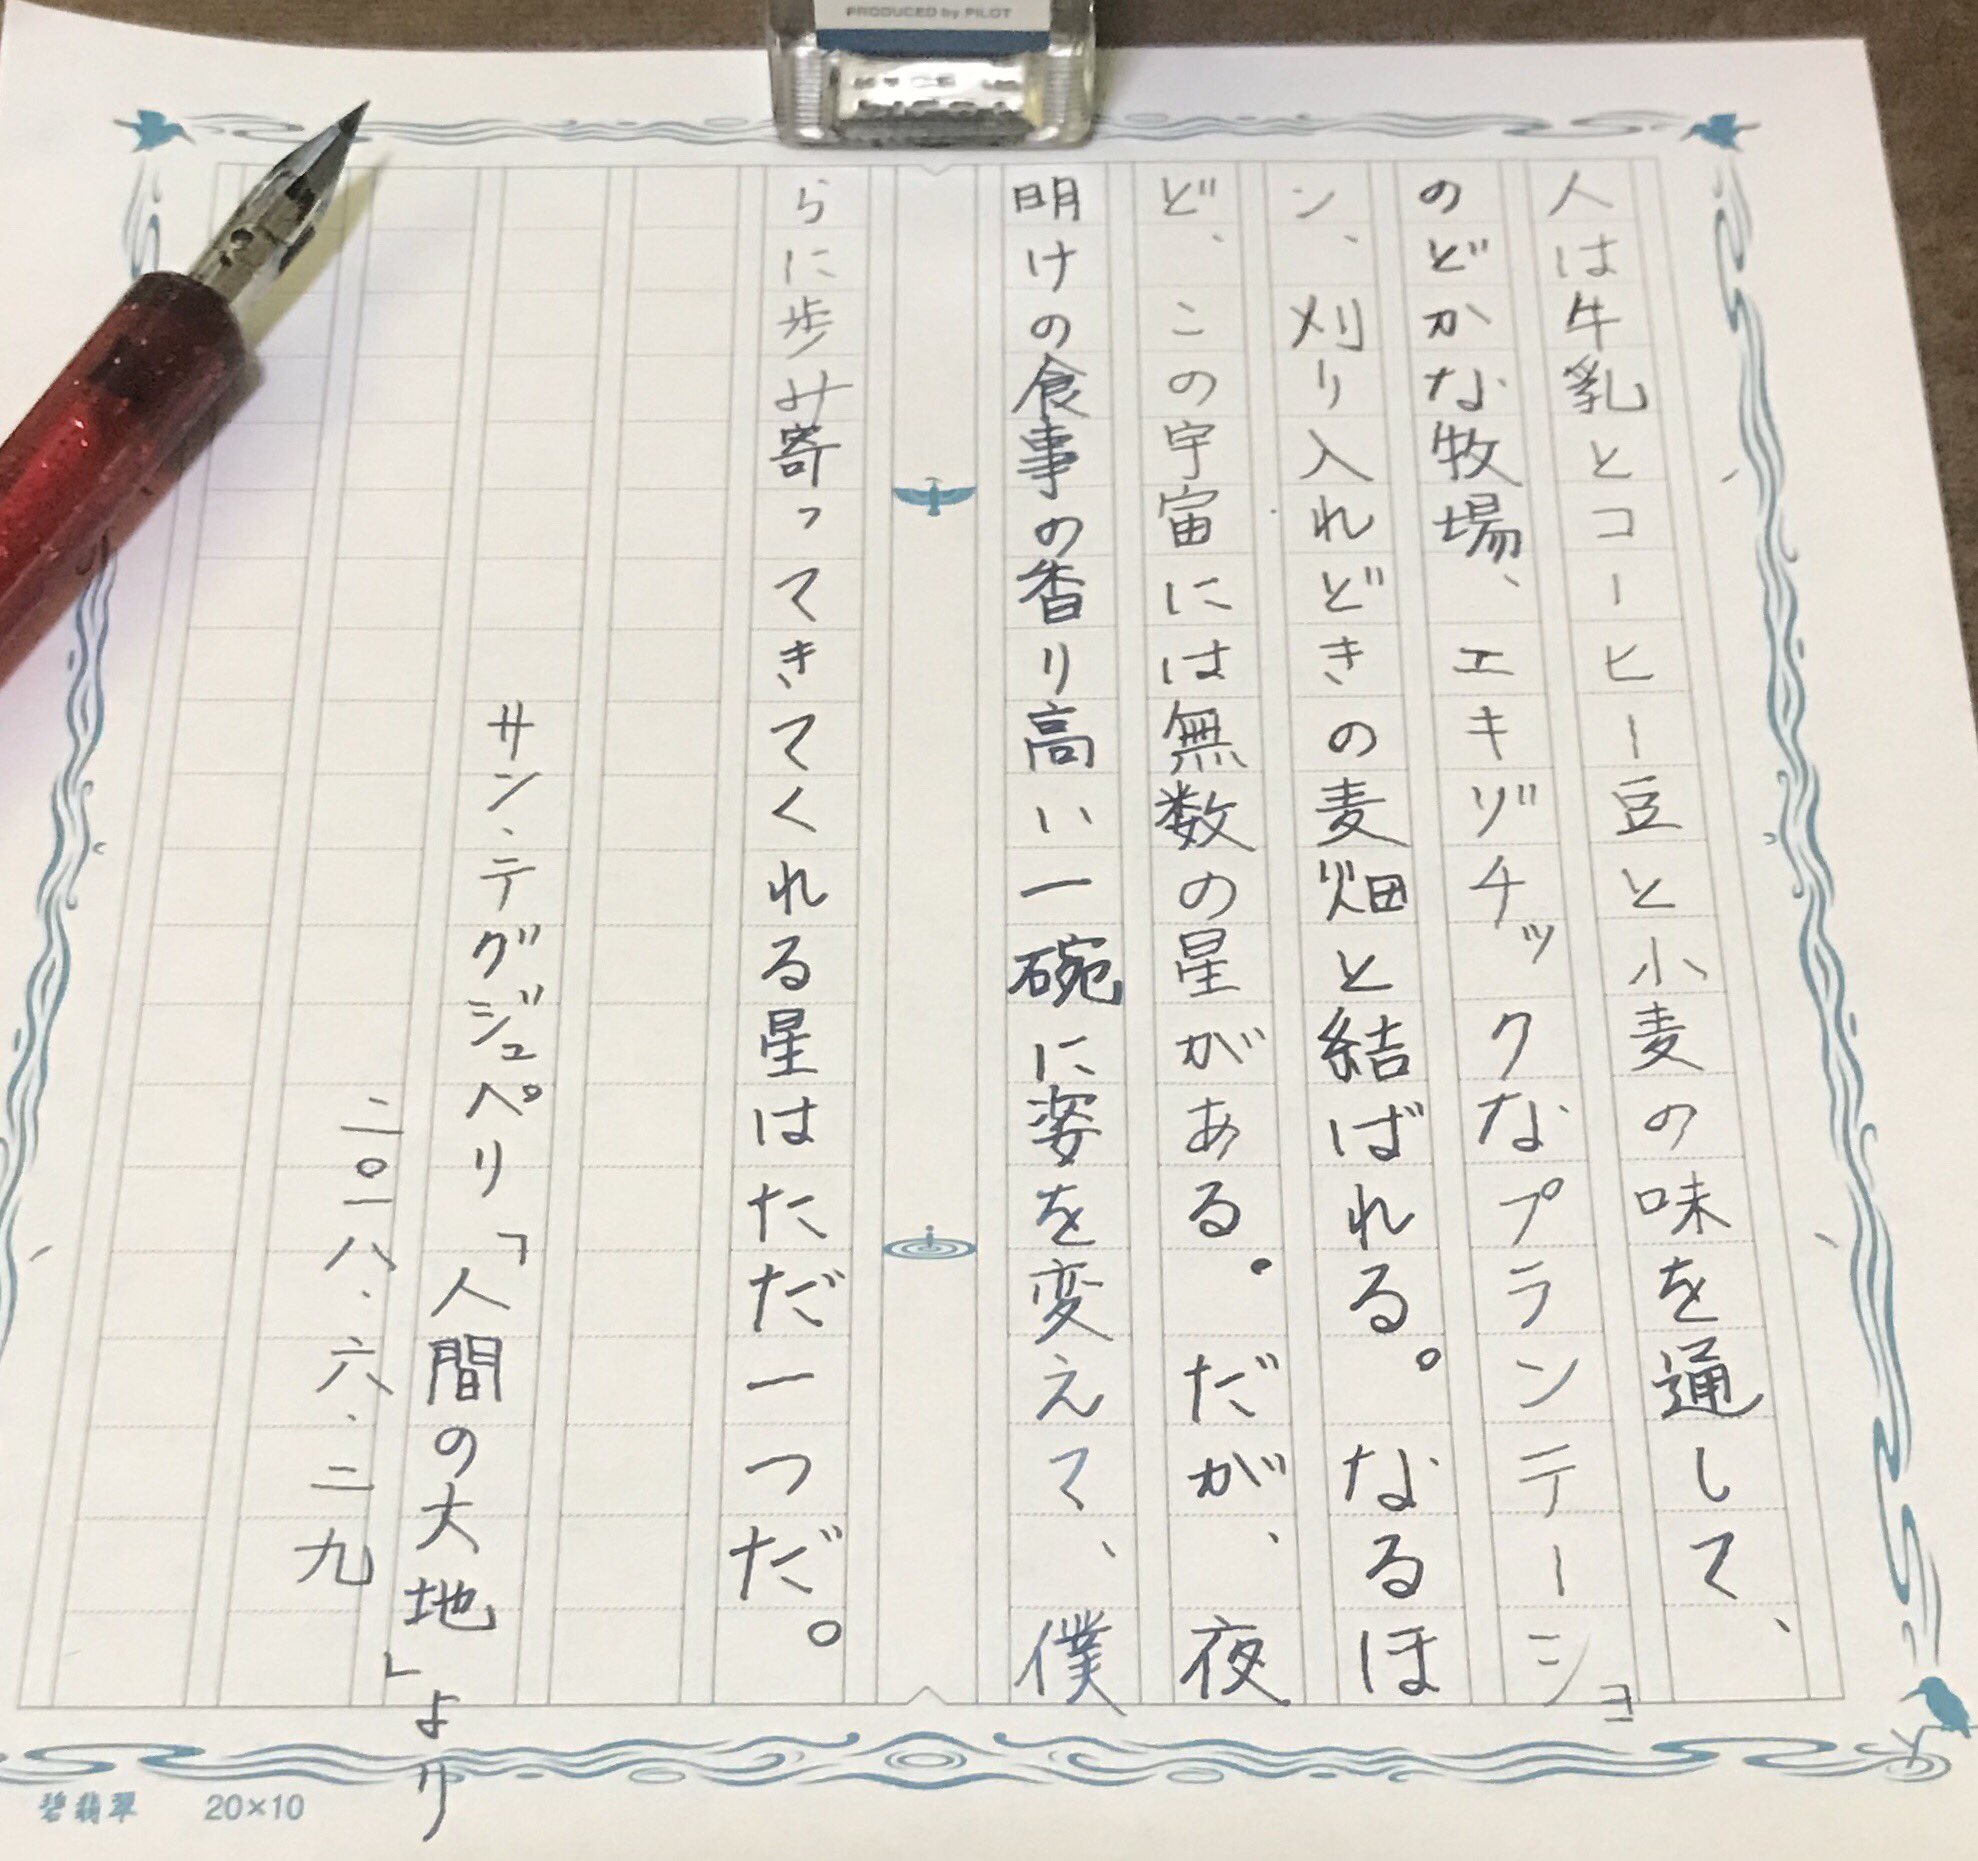 PRODUCED by PILOT
人は牛乳とコーヒー豆と小麦の味を通して、
のどかな牧場、エキゾチックなプランテーショ
ン、刈り入れどきの麦畑と結ばれる。なるほ
ど、この宇宙には無数の星がある。だが、夜
明けの食事の香り高い一碗に姿を変えて、僕
らに歩み寄ってきてくれる星はただ一つだ。
サン・テグジュペリ「人間の大地」より
二〇一八.六.二九
碧翡翠 20×10